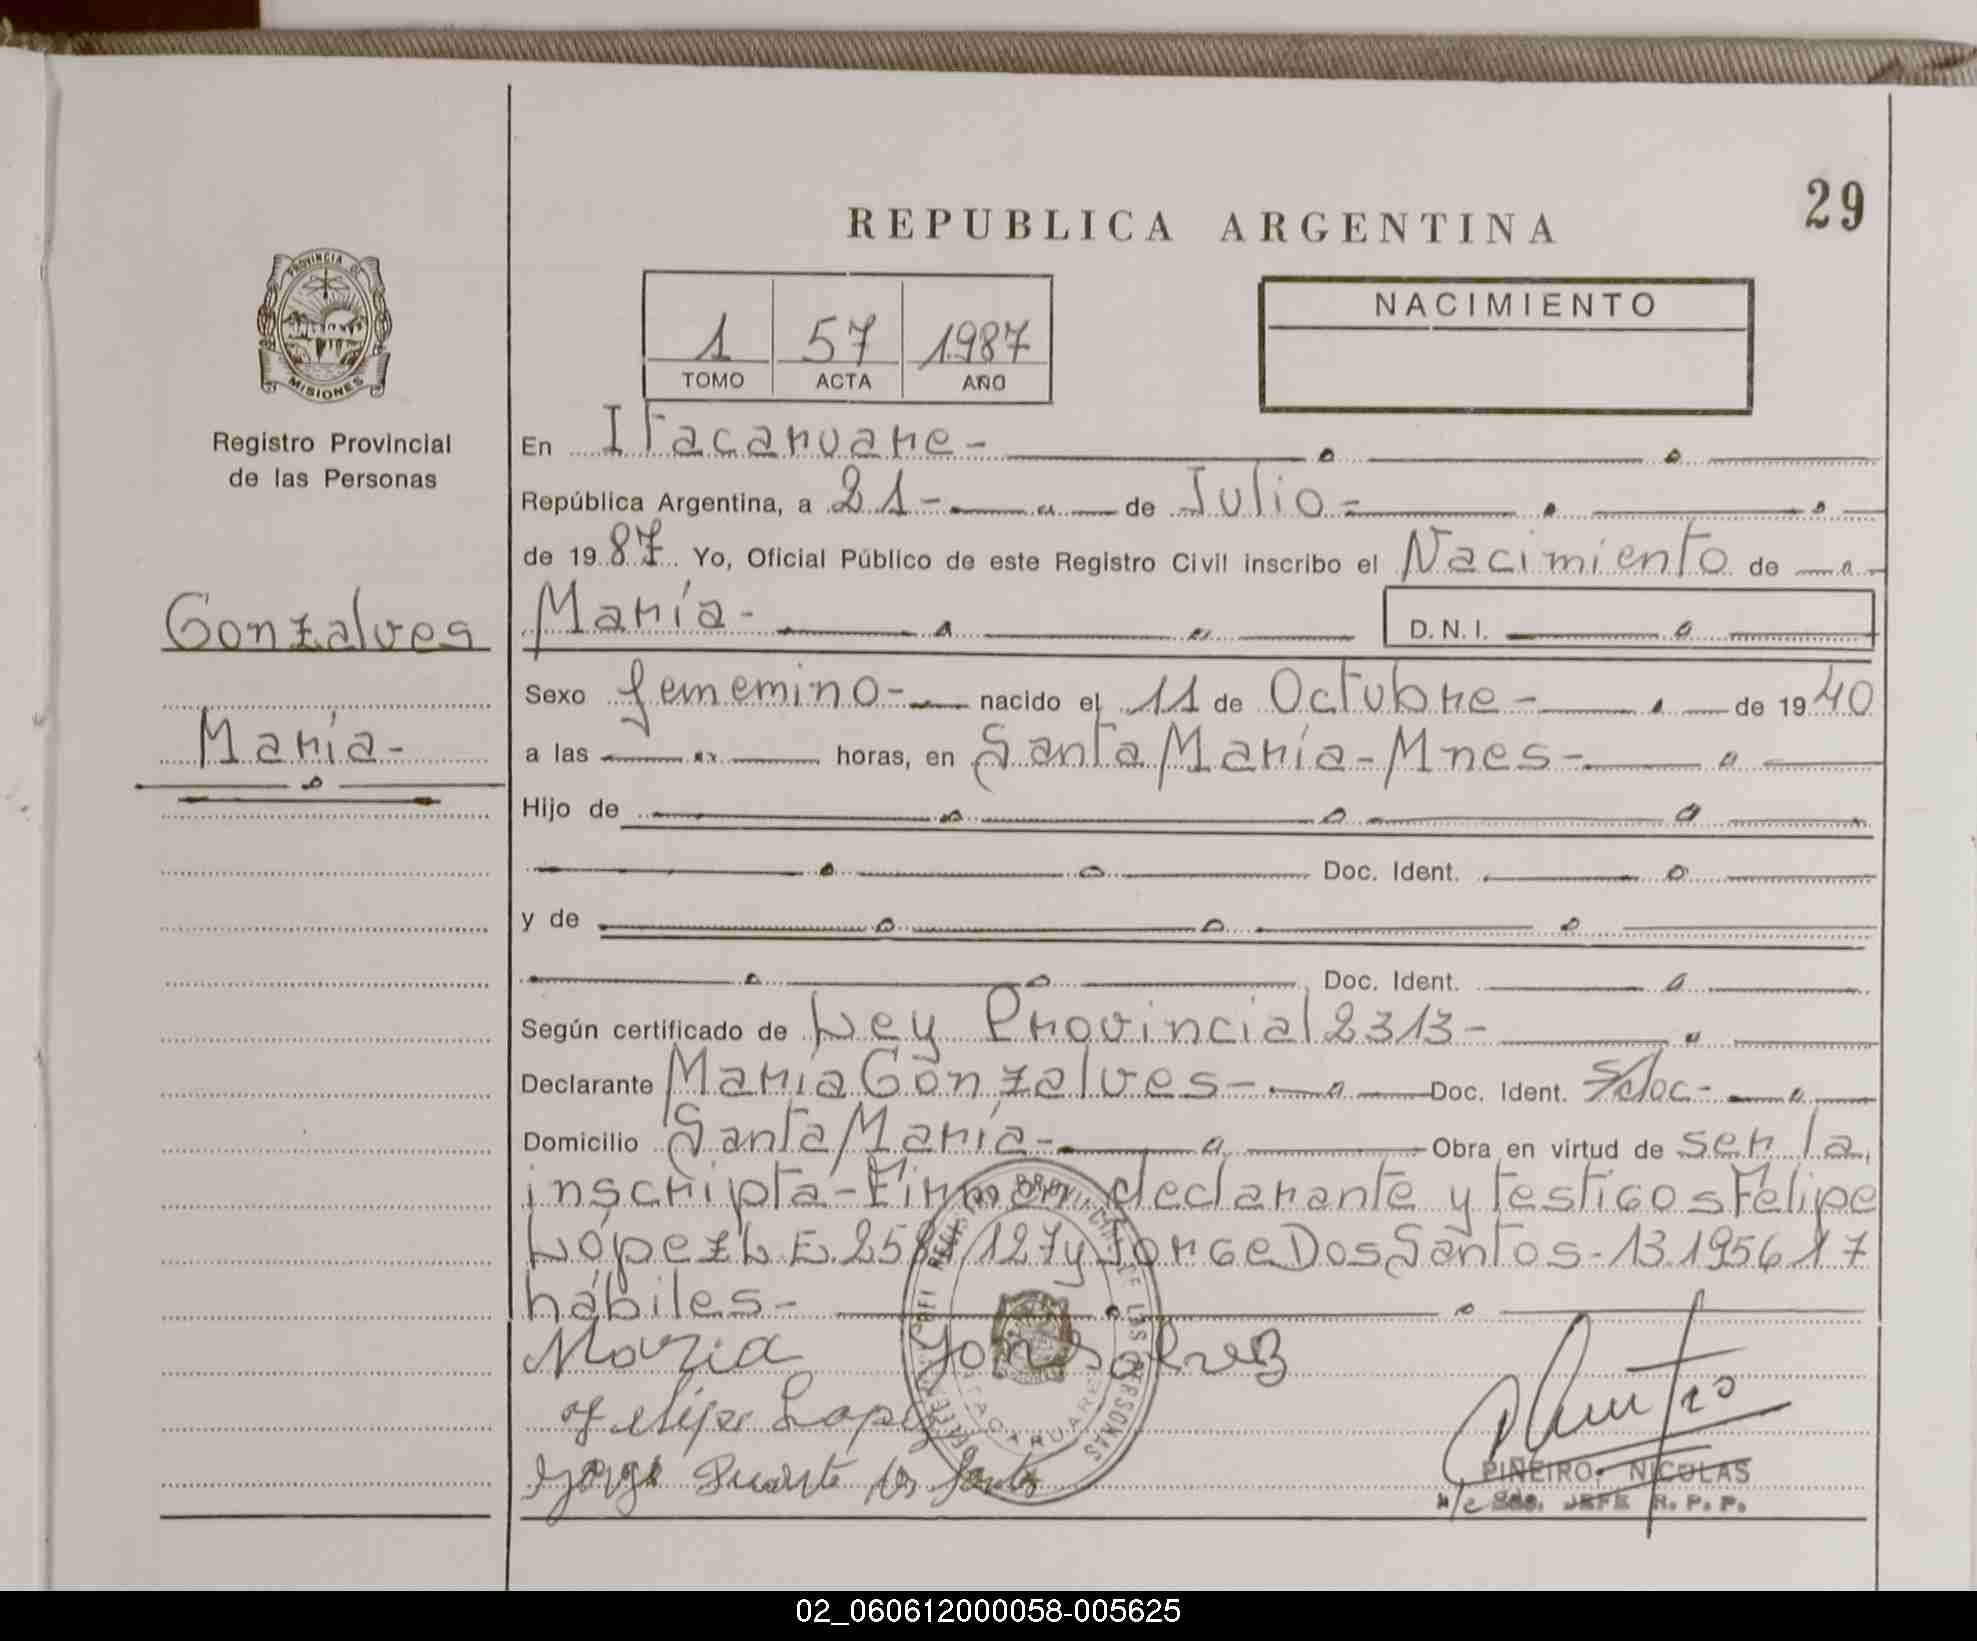 29
REPUBLICA ARGENTINA
PROVINCIA DE
MISIONES
Registro Provincial
de las Personas
Gonzalves
María-
1 57 1987
TOMO ACTA AÑO
NACIMIENTO
En Itacaruare-
República Argentina, a 21- de Julio=
de 1987 Yo, Oficial Público de este Registro Civil inscribo el Nacimiento de
María- D.N.I.
Sexo femenino- nacido el 11 de Octubre- de 1940
a las horas, en Santa María-Mnes-
Hijo de
Doc. Ident.
y de
Doc. Ident.
Según certificado de Ley Provincial 2313-
Declarante Maria Gonzalves- Doc. Ident. S/doc-
Domicilio Santa María- Obra en virtud de ser la
inscripta-Firman declarante y testigos Felipe
López L.E. 127 y Jorge Dos Santos-13.195617
hábiles-
Maria Gonsalvez
Felipe Lopez
Jorge Duarte Dos Santos
REGISTRO PROVINCIAL DE LAS PERSONAS
ITACARUARE
PIÑEIRO, NICOLAS
JEFE R.P.P.
02_060612000058-005625